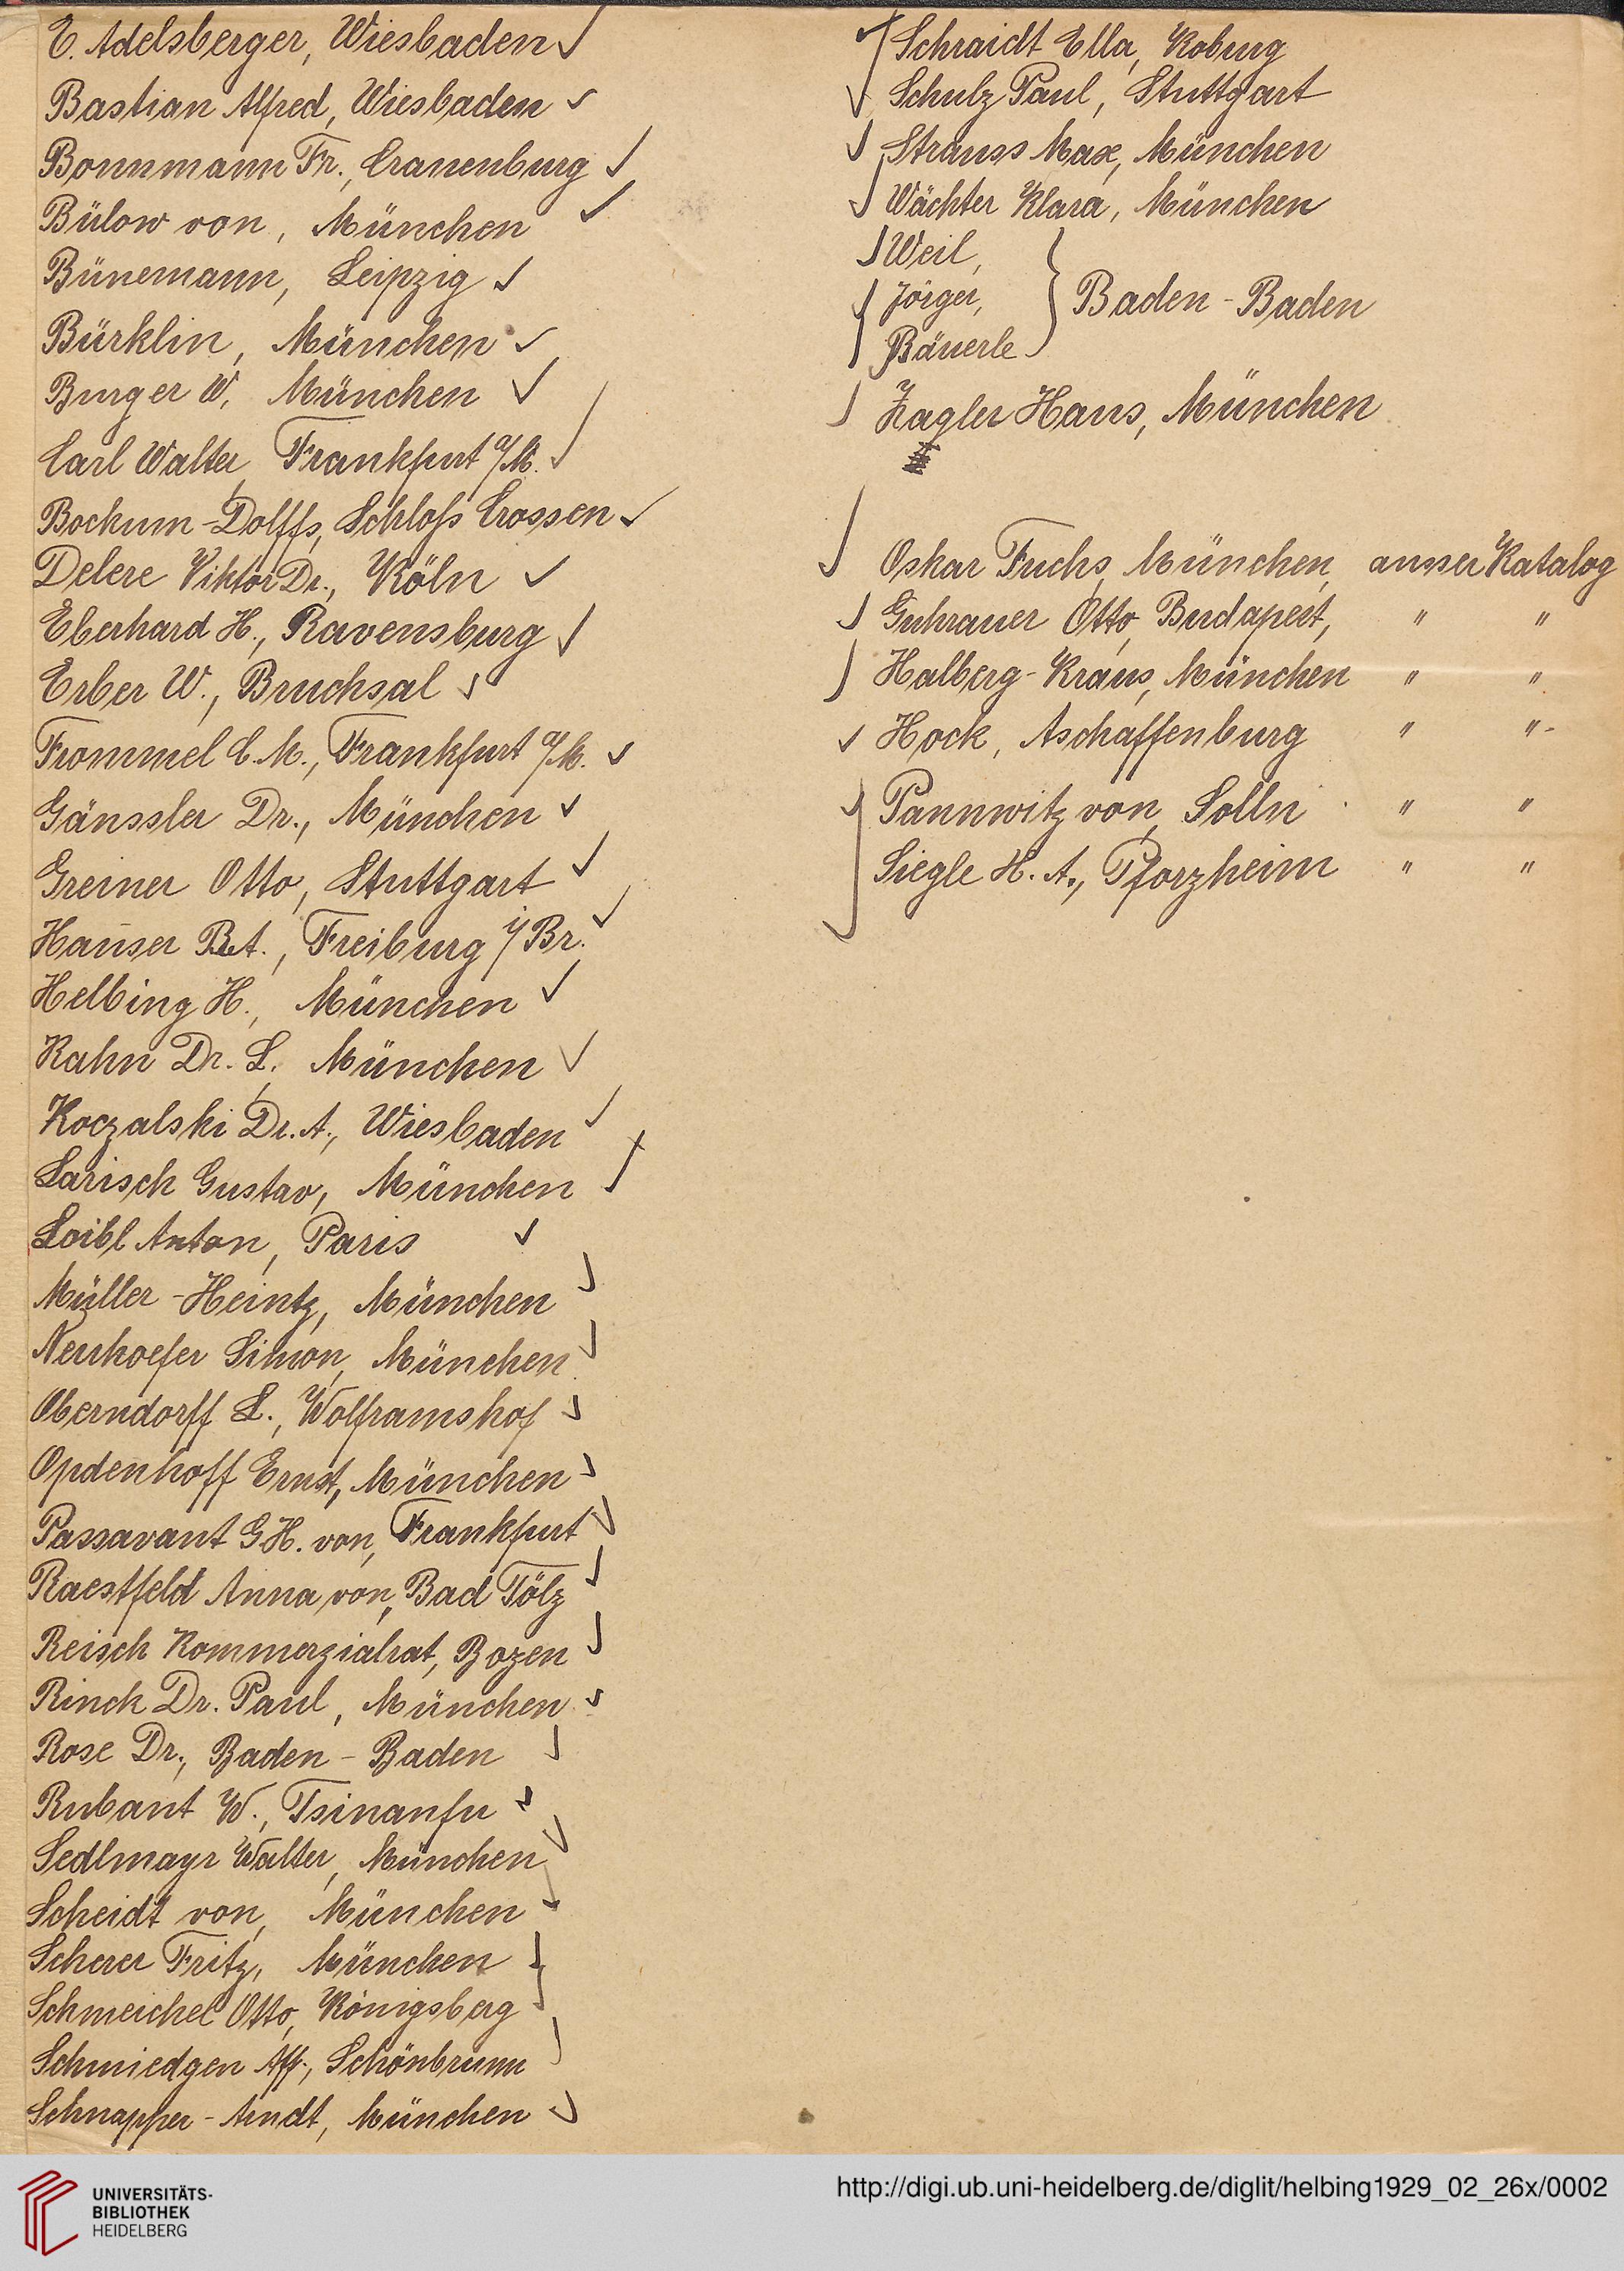 E. Adelsberger, Wiesbaden ✓
Bastian Alfred, Wiesbaden ✓
Bonnmann Fr., Cranenburg ✓
Bülow von, München ✓
Bünemann, Leipzig ✓
Bürklin, München ✓
Burger W, München ✓
Carl Walter, Frankfurt a/M. ✓
Bockum-Dolffs, Schloss Crossen ✓
Delere Viktor Dr., Köln ✓
Eberhard H., Ravensburg ✓
Erber W., Bruchsal ✓
Frommel C.M., Frankfurt a/M. ✓
Gänssler Dr., München ✓
Greiner Otto, Stuttgart ✓
Hauser Freiburg i/Br. ✓
Helbing H., München ✓
Kahn Dr. L., München ✓
Koczalski Dr. A., Wiesbaden ✓
Larisch Gustav, München ✓
Loibl Anton, Paris ✓
Müller-Heintz, München ✓
Neuhoefer Simon, München ✓
Oberndorff L., Wolframshof ✓
Opdenhoff Ernst, München ✓
Passavant G.H. von, Frankfurt ✓
Raestfeld Anna von, Bad Tölz ✓
Reisch Kommerzialrat, Bozen ✓
Rinck Dr. Paul, München ✓
Rose Dr., Baden-Baden ✓
Rubant W., Tsinanfu ✓
Sedlmayr Walter, München ✓
Scheidt von, München ✓
Scherer Fritz, München ✓
Schmeichel Otto, Königsberg ✓
Schmiedgen Schönbrunn ✓
Schnapper-Arndt, München ✓
✓ Schraidt Ella, Koburg
✓ Schulz Paul, Stuttgart
✓ Strauss Max, München
✓ Wächter Klara, München
✓ Weil,
✓ Jörger, } Baden-Baden
✓ Bäuerle
✓ Zagler Hans, München
✓ Oskar Fuchs, München, ausser Katalog
✓ Guhrauer Otto, Budapest, " "
✓ Halberg-Kraus, München " "
✓ Hock, Aschaffenburg " "
✓ Pannwitz von, Solln " "
✓ Siegle H.A., Pforzheim " "
UNIVERSITÄTS-
BIBLIOTHEK
HEIDELBERG
http://digi.ub.uni-heidelberg.de/diglit/helbing1929_02_26x/0002